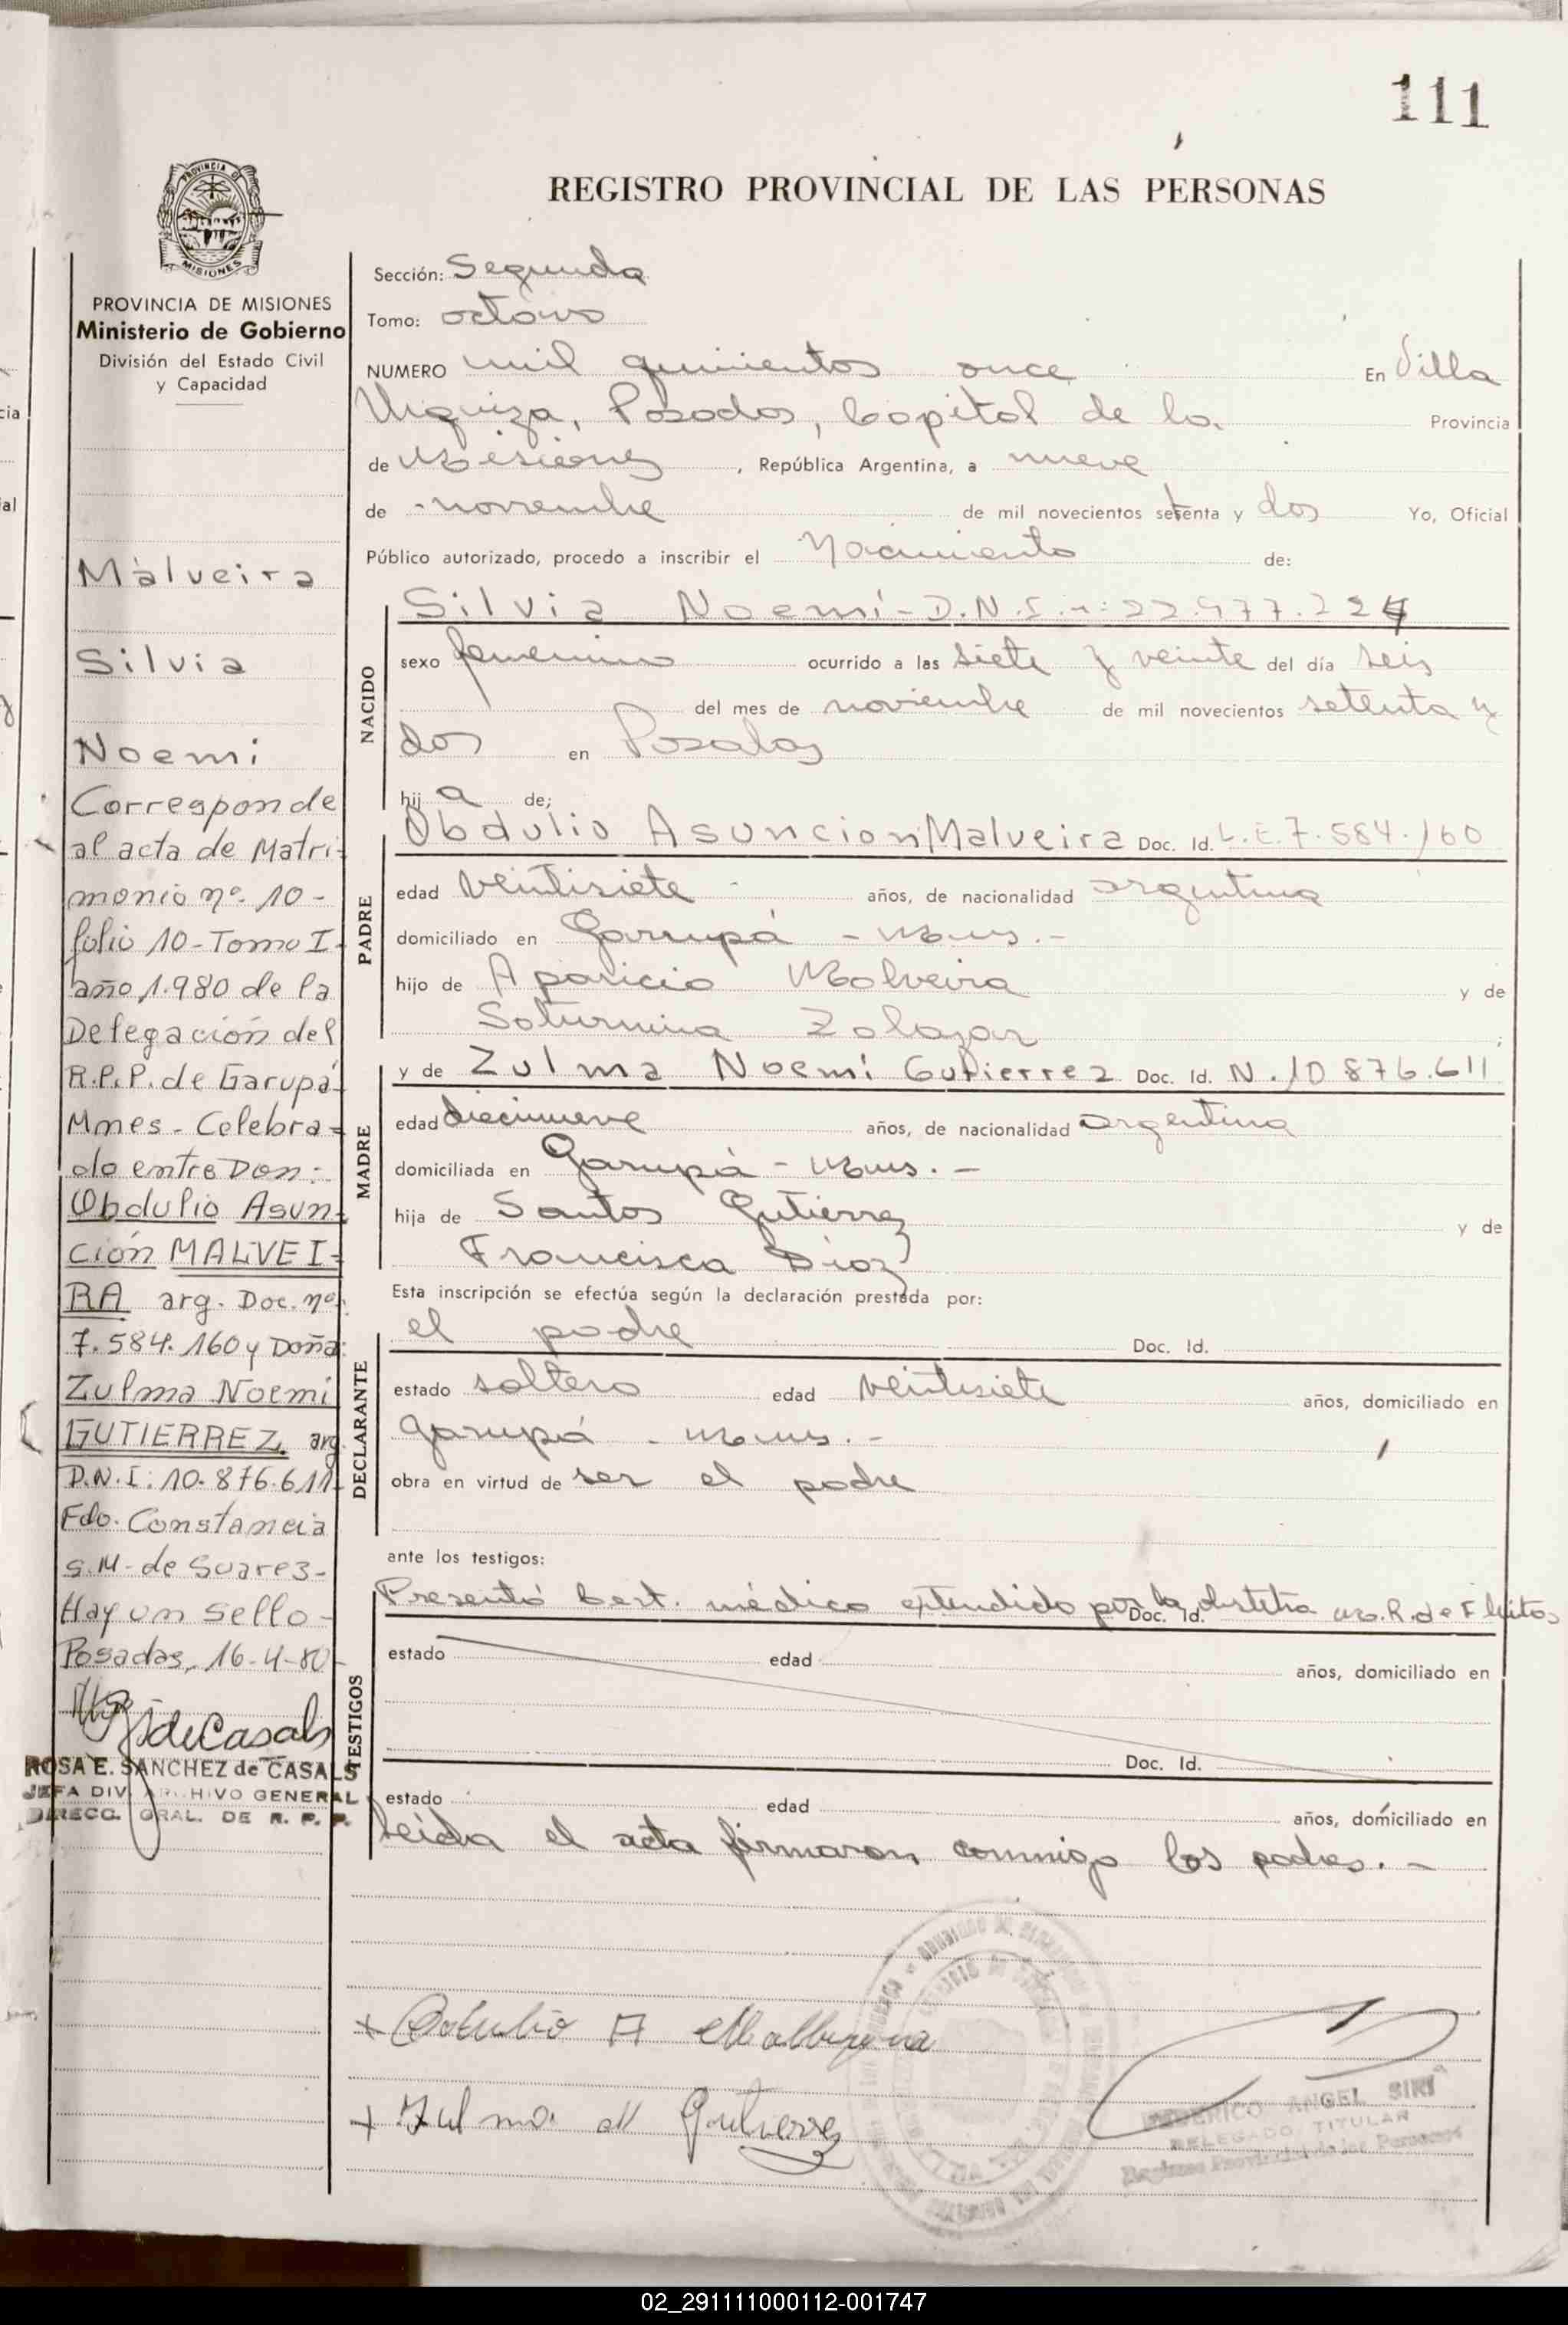 111
REGISTRO PROVINCIAL DE LAS PERSONAS
PROVINCIA DE
MISIONES
PROVINCIA DE MISIONES
Ministerio de Gobierno
División del Estado Civil
y Capacidad
Malveira
Silvia
Noemi
Corresponde
al acta de Matri-
monio nº 10-
folio 10-Tomo I-
año 1.980 de la
Delegación del
R.P.P. de Garupá-
Mnes - Celebra-
do entre Don:
Obdulio Asun-
ción MALVEI-
RA arg. Doc. nº
7.584.160 y Doña:
Zulma Noemi
GUTIERREZ arg.
D.N.I: 10.876.611-
Fdo. Constancia
S.M. de Suarez-
Hay un sello-
Posadas, 16-4-80-
ROSA E. SANCHEZ de CASALS
JEFA DIV. ARCHIVO GENERAL
DIRECC. GRAL. DE R. P. P.
Sección: Segunda
Tomo: octavo
NUMERO mil quinientos once En Villa
Urquiza, Posadas, Capital de la Provincia
de Misiones, República Argentina, a nueve
de noviembre de mil novecientos setenta y dos Yo, Oficial
Público autorizado, procedo a inscribir el Nacimiento de:
NACIDO
Silvia Noemí - D.N.I. n: 22.977.224
sexo femenino ocurrido a las siete y veinte del día seis
del mes de noviembre de mil novecientos setenta y
dos en Posadas
hija de;
PADRE
Obdulio Asuncion Malveira Doc. Id. L.E. 7.584.160
edad veintisiete años, de nacionalidad argentina
domiciliado en Garupá - Mnes.-
hijo de Aparicio Malveira y de
Saturnina Zalazar;
MADRE
y de Zulma Noemí Gutierrez Doc. Id. N. 10 876.611
edad diecinueve años, de nacionalidad argentina
domiciliada en Garupá - Mnes.-
hija de Santos Gutierrez y de
Francisca Diaz
Esta inscripción se efectúa según la declaración prestada por:
DECLARANTE
el padre Doc. Id.
estado soltero edad veintisiete años, domiciliado en
Garupá - Mnes.-
obra en virtud de ser el padre
ante los testigos:
TESTIGOS
Presentó Cert. médico extendido por la obstetra Doc. Id. R. de Fleitas
estado edad años, domiciliado en
Doc. Id.
estado edad años, domiciliado en
Leida el acta firmaron conmigo los padres.-
+ Obdulio A
+ Zulma N Gutierrez
FEDERICO ANGEL SIRI
DELEGADO TITULAR
Registro Provincial de las Personas
02_291111000112-001747